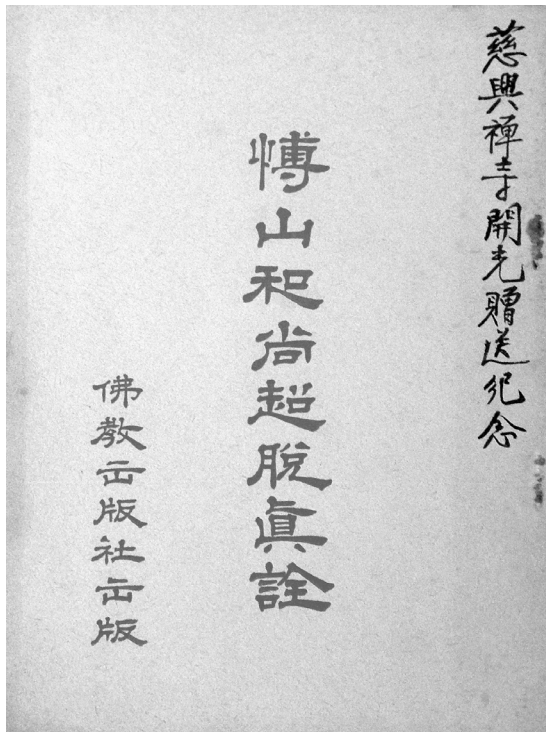 慈興禅寺開光贈送纪念
博山和尚超脫眞詮
佛教出版社出版